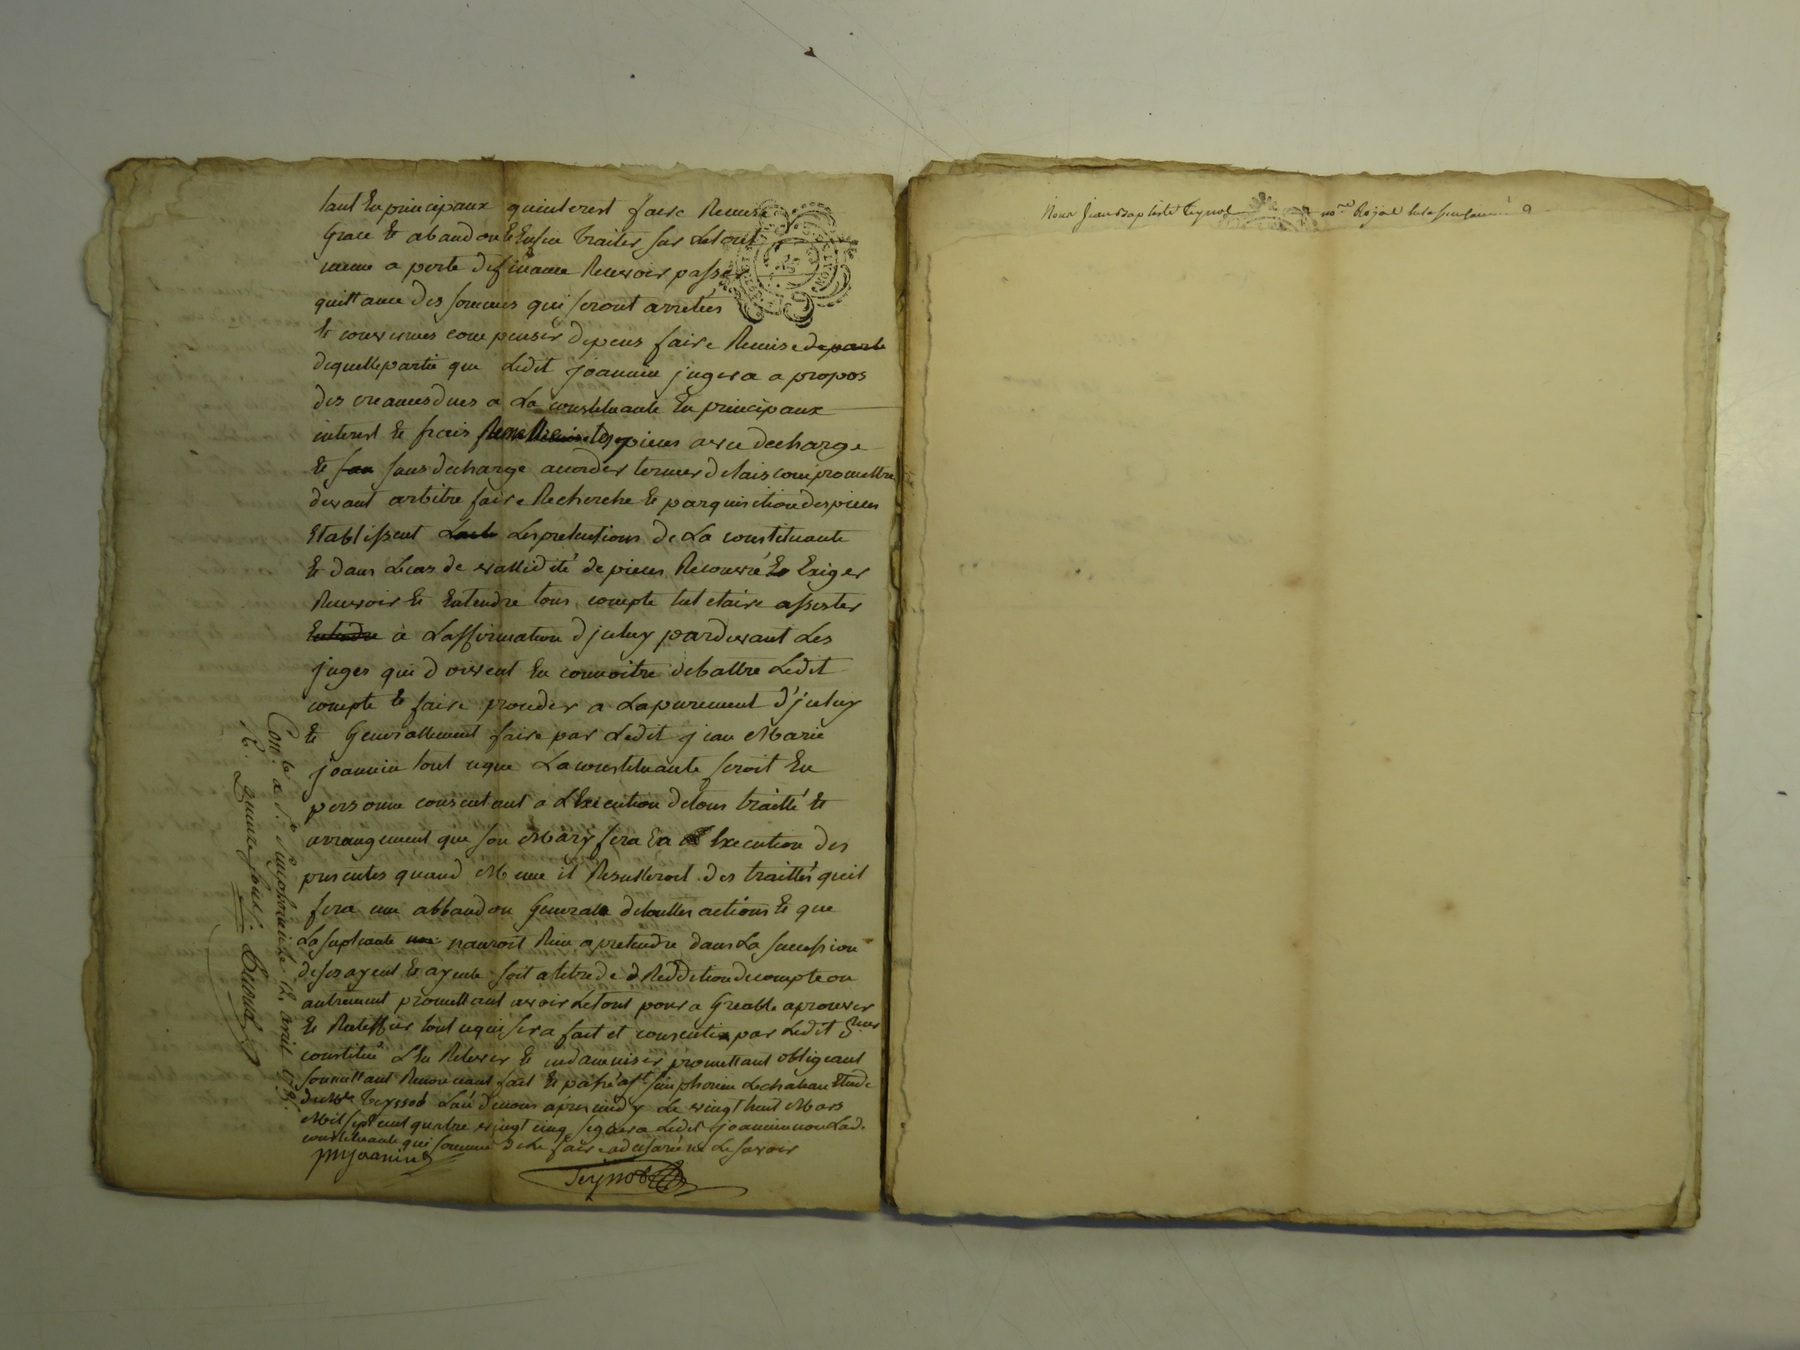 tant En principaux quinterest faire Remise
Grace & abandon & Enfin traiter sur Letout
meme a perte de finance Recevoir passer
quittance des sommes qui seront arretées
& convenues compenser depens faire Remise de parte
de quelle partie que Ledit joannin jugera a propos
des creances dues a La constituante En principaux
interest & frais pieces avec decharge
& sans decharge accorder termes delais compromettre
devant arbitre faire Recherche & parquisition des pieces
Etablissent Les pretentions de La constituante
& dans Le cas de vallidité de pieces Recouvré Exiger
Recevoir & Entendre tous compte tutelaire assister
Entendre a Laffirmation d'jceluy pardevant Les
juges qui doivent En connoitre debattre Ledit
compte & faire proceder a Lapurement d'jceluy
& Generallement faire par Ledit jean Marie
joannin tout ce que La constituante feroit En
personne consentant a LExecution de tous traitté &
arrangement que son Mary fera En Execution des
presentes quand Meme il Resulteroit des traittés quil
fera un abbandon General de touttes actions & que
La supliante nauroit Rien a pretendre dans La succession
de ses ayeul & ayeule soit a titre de Reddition de compte ou
autrement promettant avoir Letout pour a Greable aprouver
& Ratiffier tout ce qui sera fait et consenti par Ledit Sieur
constitué LEn Relever & indamniser promettant obligeant
soumettant Renonceant fait & passé a St simphorien Le chateau Etude
de Me Teyssot Lainé denous apres midy Le vingt huit Mars
Mil sept cent quatre vingt cinq signera Ledit joannin non Lad.
constituante qui sommé de Le faire a declaré ne Le savoir
JM joannin
Teynot
Con.lé a St. Simphorien le 2 avril 1785.
R. quinze sous.
Nous Jean Baptiste Teynot no.re Royal